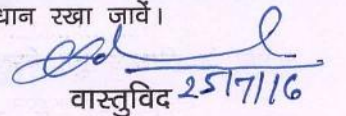 धान रखा जावें।
वास्तुविद 25/7/16